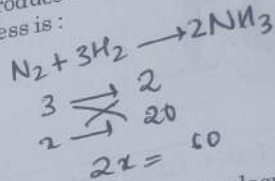 ess is :
N₂ + 3H₂ → 2NH₃
3 → 2
x → 20
2x = 60